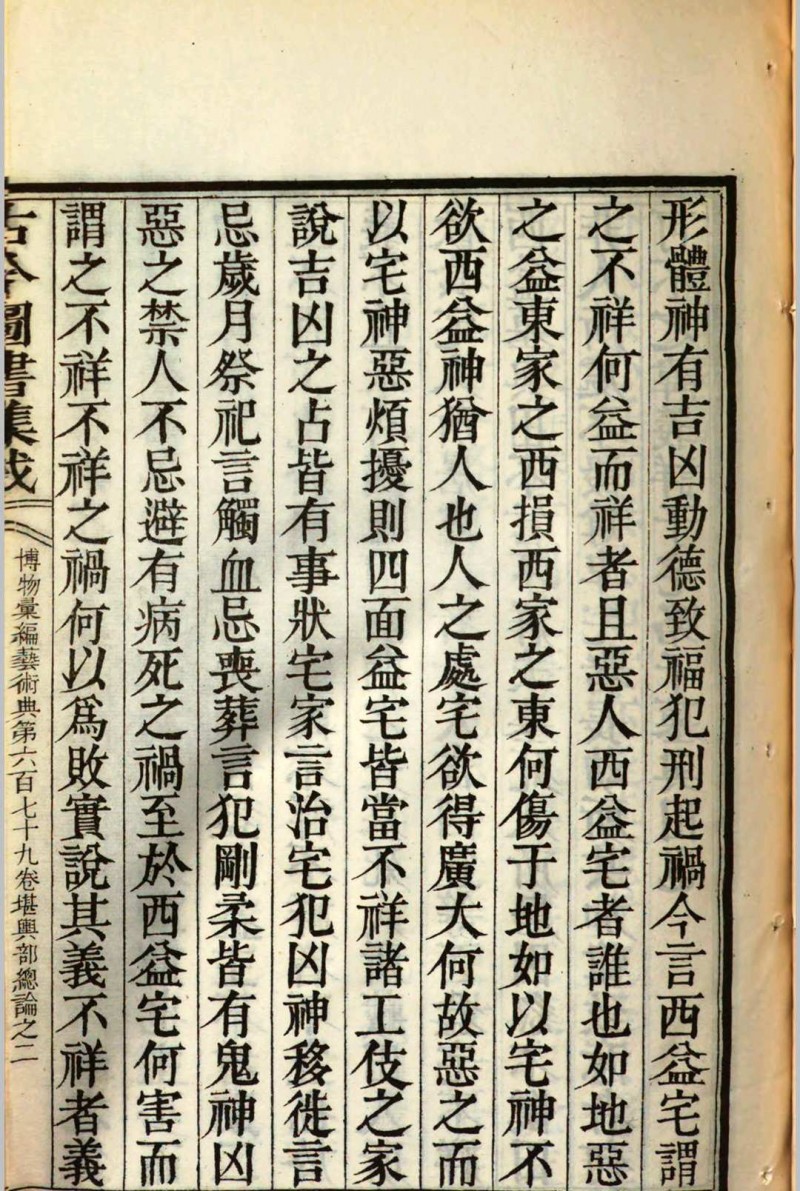 形體神有吉凶動德致福犯刑起禍今言西益宅謂
之不祥何益而祥者且惡人西益宅者誰也如地惡
之益東家之西損西家之東何傷于地如以宅神不
欲西益神猶人也人之處宅欲得廣大何故惡之而
以宅神惡煩擾則四面益宅皆當不祥諸工伎之家
說吉凶之占皆有事狀宅家言治宅犯凶神移徙言
忌歲月祭祀言觸血忌喪葬言犯剛柔皆有鬼神凶
惡之禁人不忌避有病死之禍至於西益宅何害而
謂之不祥不祥之禍何以爲敗實說其義不祥者義
古今圖書集成
博物彙編藝術典第六百七十九卷堪輿部總論之二